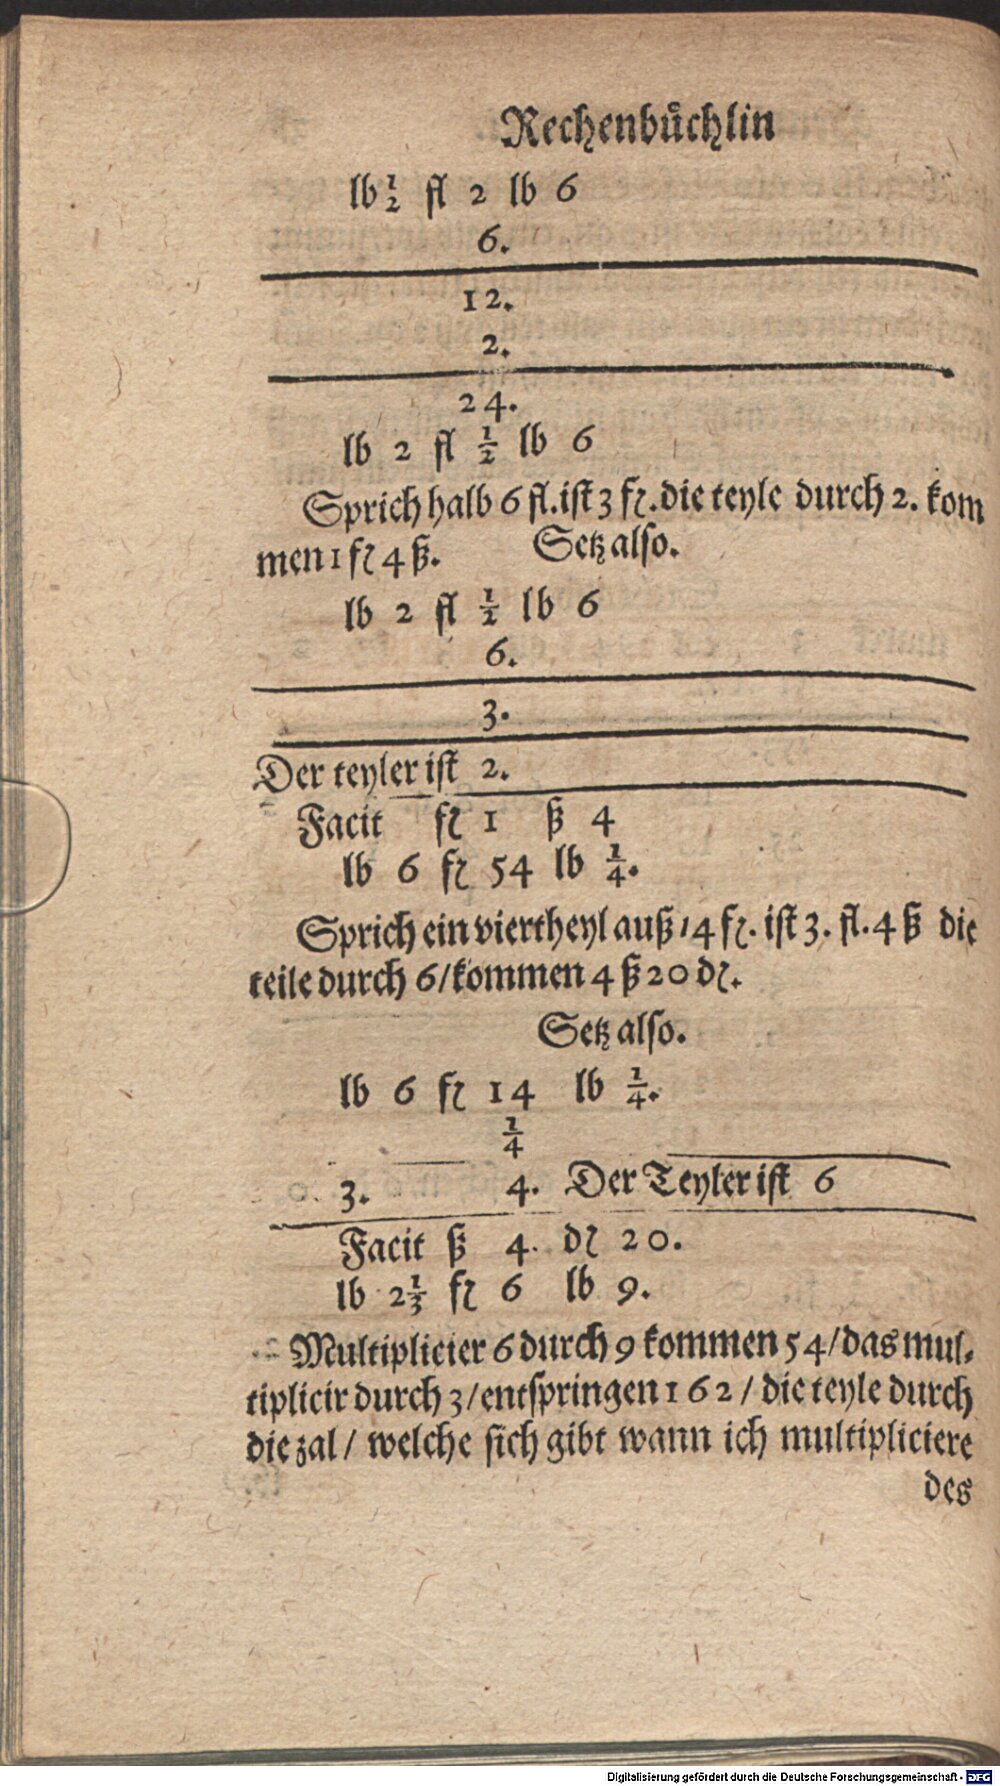 Rechenbuͤchlin
lb ½ fl 2 lb 6
6.
12.
2.
24.
lb 2 fl ½ lb 6
Sprich halb 6 fl. ist 3 fl. die teyle durch 2. kom
men 1 fl 4 ß. Setz also.
lb 2 fl ½ lb 6
6.
3.
Der teyler ist 2.
Facit fl 1 ß 4
lb 6 fl 54 lb ¼.
Sprich ein viertheyl auß 14 fl. ist 3. fl. 4 ß die
teile durch 6/ kommen 4 ß 20 dl.
Setz also.
lb 6 fl 14 lb ¼.
¼
3. 4. Der Teyler ist 6
Facit ß 4. dl 20.
lb 2⅓ fl 6 lb 9.
Multiplicier 6 durch 9 kommen 54/ das mul-
tiplicir durch 3/ entspringen 162/ die teyle durch
die zal/ welche sich gibt wann ich multipliciere
des
Digitalisierung gefördert durch die Deutsche Forschungsgemeinschaft - DFG